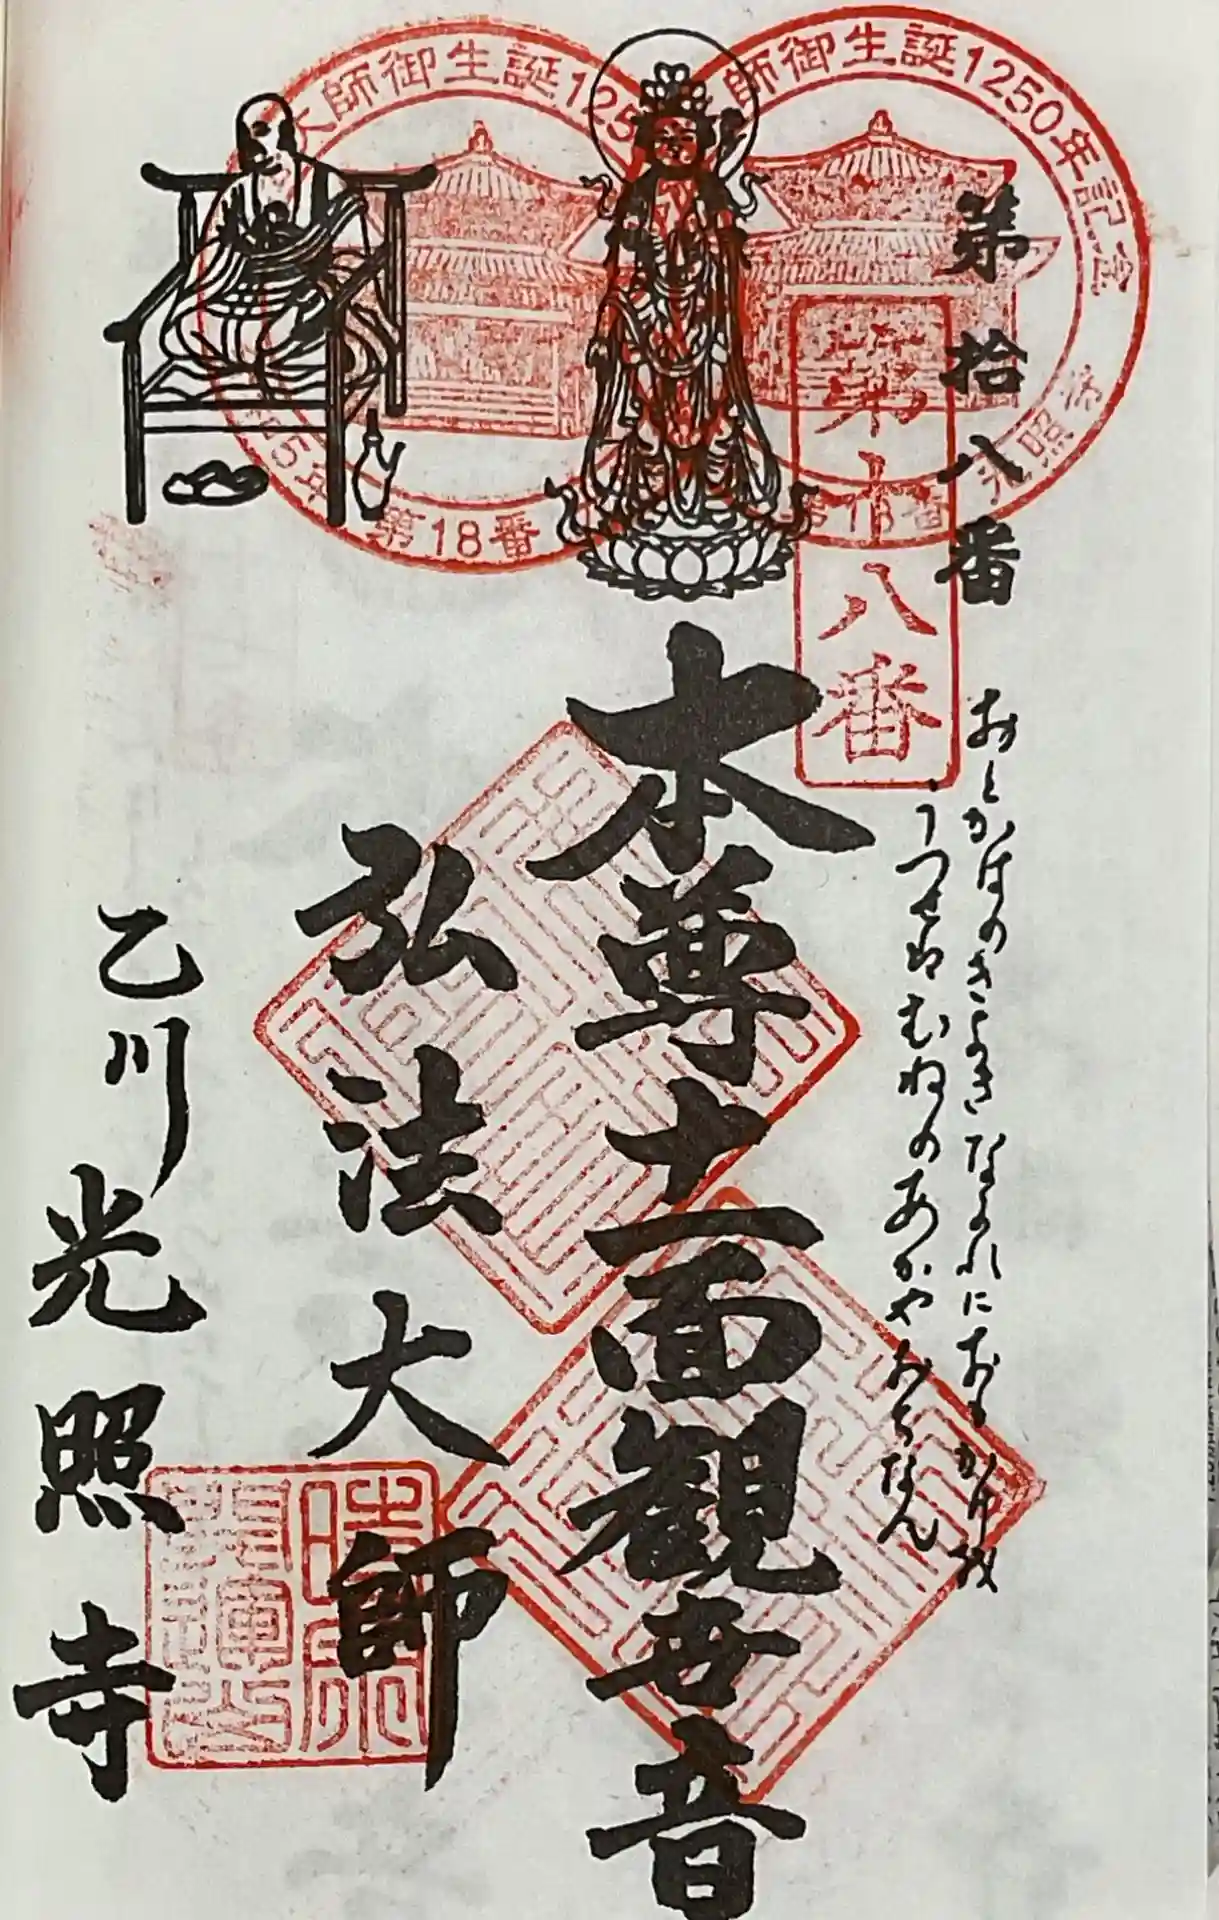 大師御生誕125
第18番
師御生誕1250年記念
第18番 光照寺
第拾八番
第十八番
おとがはのきよきながれにおもかげを
うつせばむねのあかやおちなん
本尊十一面観世音
弘法大師
乙川光照寺